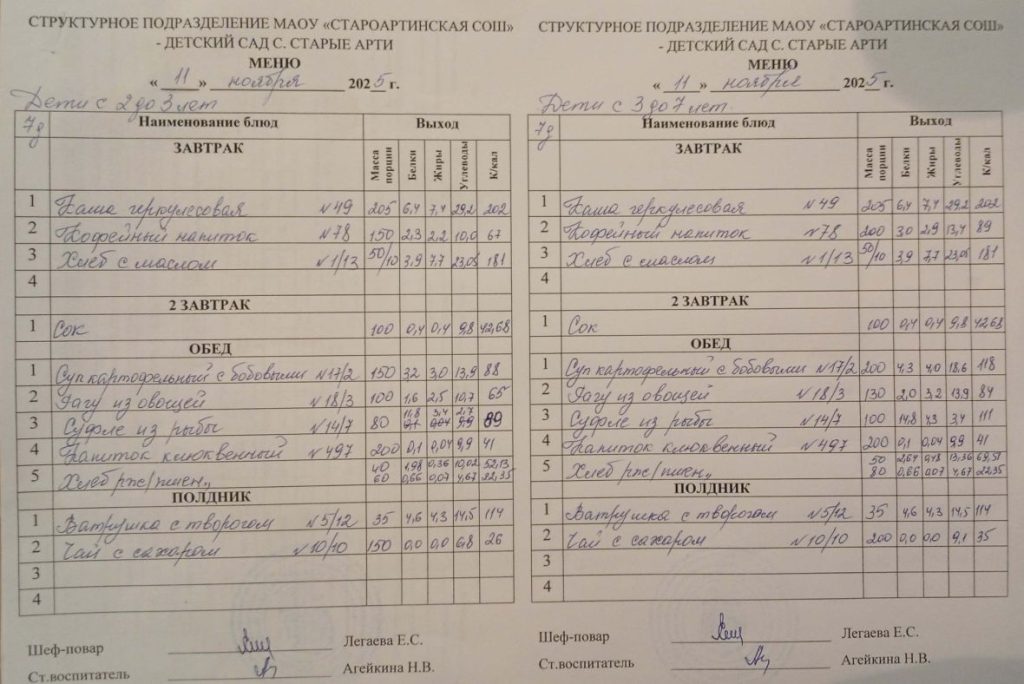 СТРУКТУРНОЕ ПОДРАЗДЕЛЕНИЕ МАОУ «СТАРОАРТИНСКАЯ СОШ»
- ДЕТСКИЙ САД С. СТАРЫЕ АРТИ
МЕНЮ
« 11 » ноября 2025 г.
Дети с 2 до 3 лет
7д Наименование блюд Выход
ЗАВТРАК Масса порции Белки Жиры Углеводы К/кал
1 Каша геркулесовая №49 205 6,4 7,4 29,2 202
2 Кофейный напиток №78 150 2,3 2,2 10,0 67
3 Хлеб с маслом №1/13 50/10 3,9 7,7 23,05 181
4
2 ЗАВТРАК
1 Сок 100 0,4 0,4 9,8 42,68
ОБЕД
1 Суп картофельный с бобовыми №17/2 150 32 3,0 13,9 88
2 Рагу из овощей №18/3 100 1,6 2,5 10,7 65
3 Суфле из рыбы №14/7 80 11,8 3,4 2,7 89
4 Напиток клюквенный №497 200 0,1 0,04 9,9 41
5 Хлеб рж/пшен„ 40 1,98 0,36 10,02 52,13
60 0,66 0,07 4,67 22,35
ПОЛДНИК
1 Ватрушка с творогом №5/12 35 4,6 4,3 14,5 114
2 Чай с сахаром №10/10 150 0,0 0,0 6,8 26
3
4
Шеф-повар Легаева Е.С.
Ст.воспитатель Агейкина Н.В.
СТРУКТУРНОЕ ПОДРАЗДЕЛЕНИЕ МАОУ «СТАРОАРТИНСКАЯ СОШ»
- ДЕТСКИЙ САД С. СТАРЫЕ АРТИ
МЕНЮ
« 11 » ноября 2025 г.
Дети с 3 до 7 лет.
7д Наименование блюд Выход
ЗАВТРАК Масса порции Белки Жиры Углеводы К/кал
1 Каша геркулесовая №49 205 6,4 7,4 29,2 202
2 Кофейный напиток №78 200 3,0 2,9 13,4 89
3 Хлеб с маслом №1/13 50/10 3,9 7,7 23,05 181
4
2 ЗАВТРАК
1 Сок 100 0,4 0,4 9,8 42,68
ОБЕД
1 Суп картофельный с бобовыми №17/2 200 4,3 4,0 18,6 118
2 Рагу из овощей №18/3 130 2,0 3,2 13,9 84
3 Суфле из рыбы №14/7 100 14,8 4,3 3,4 111
4 Напиток клюквенный №497 200 0,1 0,04 9,9 41
5 Хлеб рж/пшен„ 50 2,64 0,48 13,36 69,51
80 0,66 0,07 4,67 22,35
ПОЛДНИК
1 Ватрушка с творогом №5/12 35 4,6 4,3 14,5 114
2 Чай с сахаром №10/10 200 0,0 0,0 9,1 35
3
4
Шеф-повар Легаева Е.С.
Ст.воспитатель Агейкина Н.В.